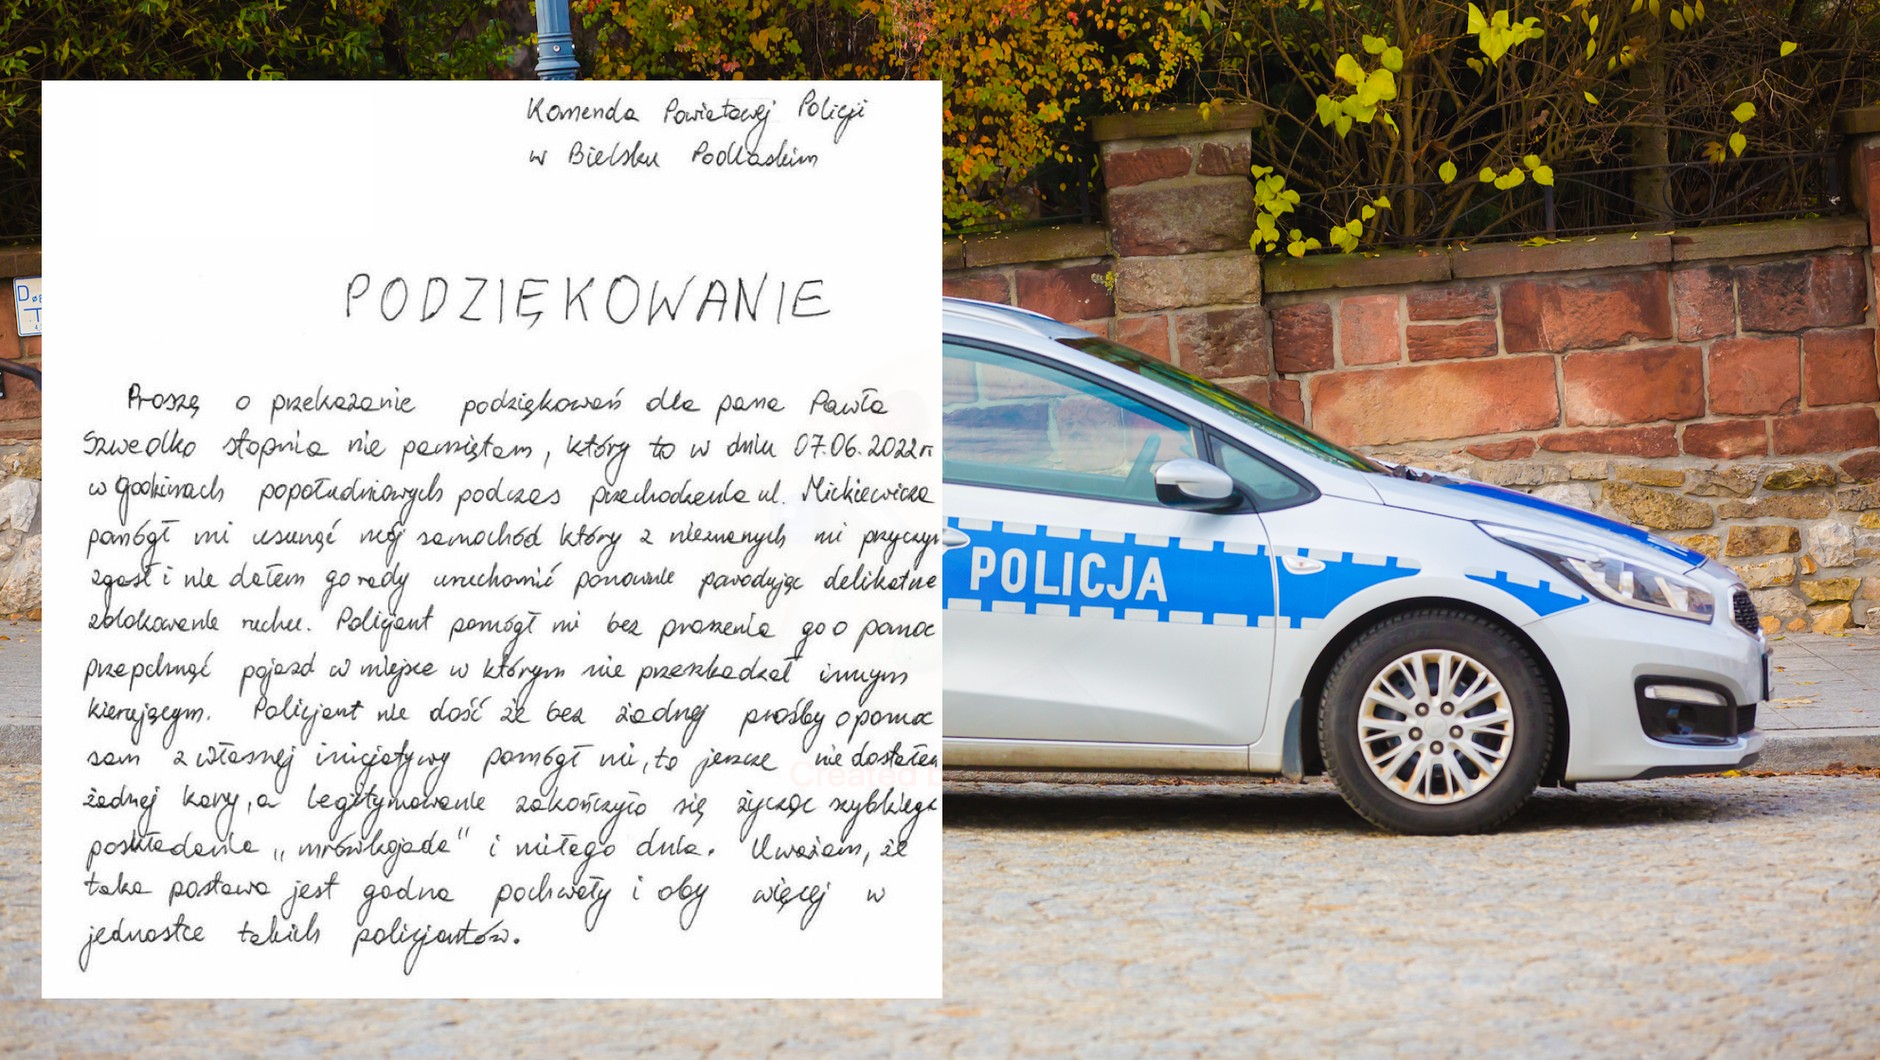 Komenda Powiatowej Policji
w Bielsku Podlaskim
PODZIĘKOWANIE
Proszę o przekazanie podziękowań dla pana Pawła
Szwedko stopnia nie pamiętam, który to w dniu 07.06.2022r
w godzinach popołudniowych podczas przechodzenia ul. Mickiewicza
pomógł mi usunąć mój samochód który z nieznanych mi przyczyn
zgasł i nie dałem go rady uruchomić ponownie powodując delikatne
zblokowanie ruchu. Policjant pomógł mi bez proszenia go o pomoc
przepchnąć pojazd w miejsce w którym nie przeszkadzał innym
kierującym. Policjant nie dość że bez żadnej prośby o pomoc
sam z własnej inicjatywy pomógł mi, to jeszcze nie dostałem
żadnej kary, a legitymowanie zakończyło się życząc szybkiego
poskładania „mrówkojada" i miłego dnia. Uważam, że
taka postawa jest godna pochwały i oby więcej w
jednostce takich policjantów.
POLICJA
Created
D
T